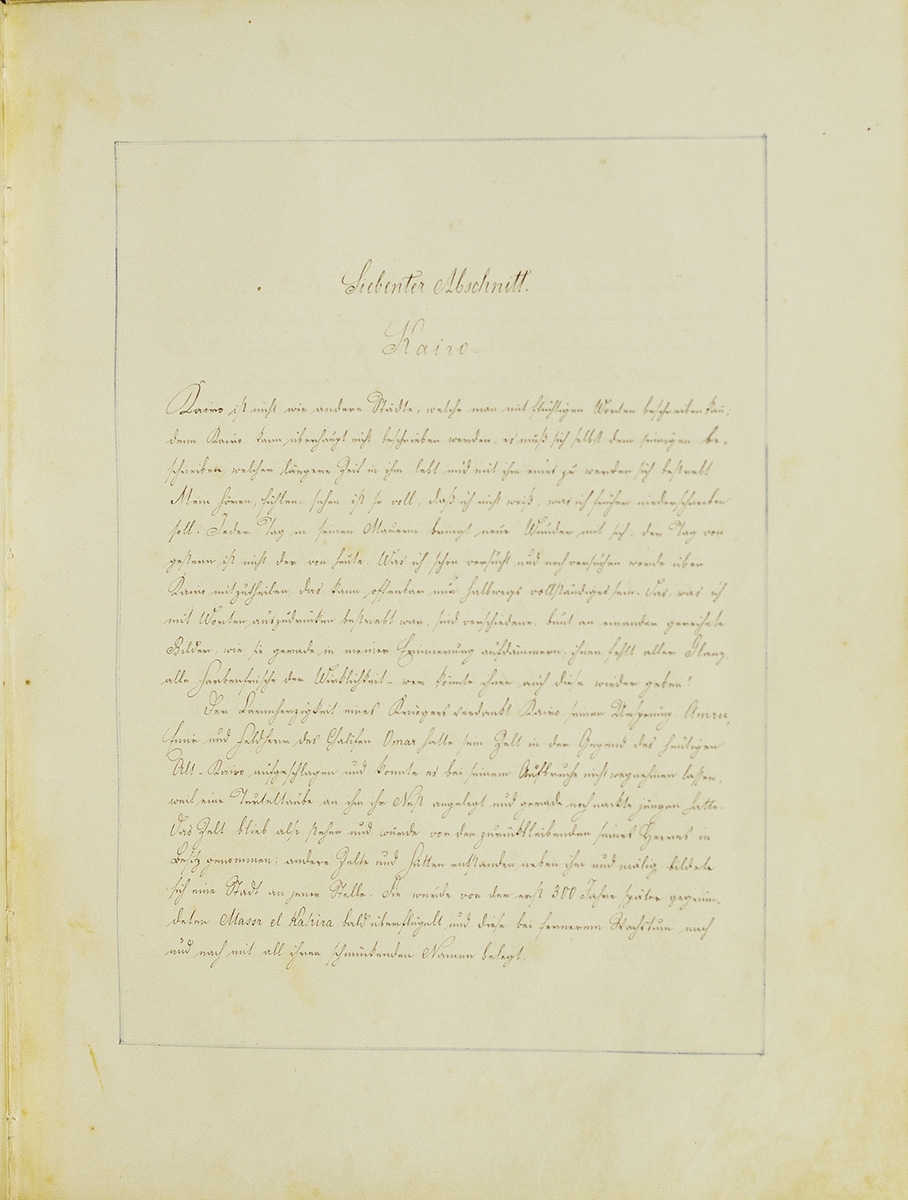 Siebenter Abschnitt.
Kairo.
Kairo ist nicht wie andere Städte, welche man mit flüchtigen Worten beschreiben kan;
denn Kairo kann überhaupt nicht beschrieben werden, es muß sich selbst dem jenigen be-
schreiben, welcher längere Zeit in ihm lebt und mit ihm eins zu werden sich bestrebt.
Mein Hören, Fühlen, Sehen ist so voll, daß ich nicht weiß, was ich früher niederschreiben
soll. Jeder Tag in seinen Mauern bringt neue Wunder mit sich; der Tag von
gestern ist nicht der von heute. Was ich schon versucht und noch versuchen werde über
Kairo mitzutheilen, das kann offenbar nur halbwegs vollständiges sein. Das, was ich
mit Worten auszudrücken bestrebt war, sind verschiedene, bunt an einander gereihete
Bilder, wie sie gerade in meiner Erinnerung aufdämmern; ihnen fehlt aller Glanz,
alle Farbenfrische der Wirklichkeit – wer könnte ihnen auch diese wieder geben!
Der Barmherzigkeit eines Kriegers verdankt Kairo seinen Ursprung. Amru,
Emir und Feldherr des Chalifen Omar hatte sein Zelt in der Gegend des heutigen
Alt-Kairo aufgeschlagen und konnte es bei seinem Aufbruche nicht wegnehmen lassen,
weil eine Turteltaube an ihm ihr Nest angelegt und gerade noch nackte Jungen hatte.
Das Zelt blieb also stehen und wurde von den zurückbleibenden seines Heeres in
Besitz genommen; andere Zelte und Hütten entstanden neben ihm und mälig bildete
sich eine Stadt an jener Stelle. Sie wurde von der erst 300 Jahre später gegrün-
deten Massr el Kahira bald überflügelt und diese bei fernerem Wachstum nach
und nach mit all ihren schmückenden Namen belegt.